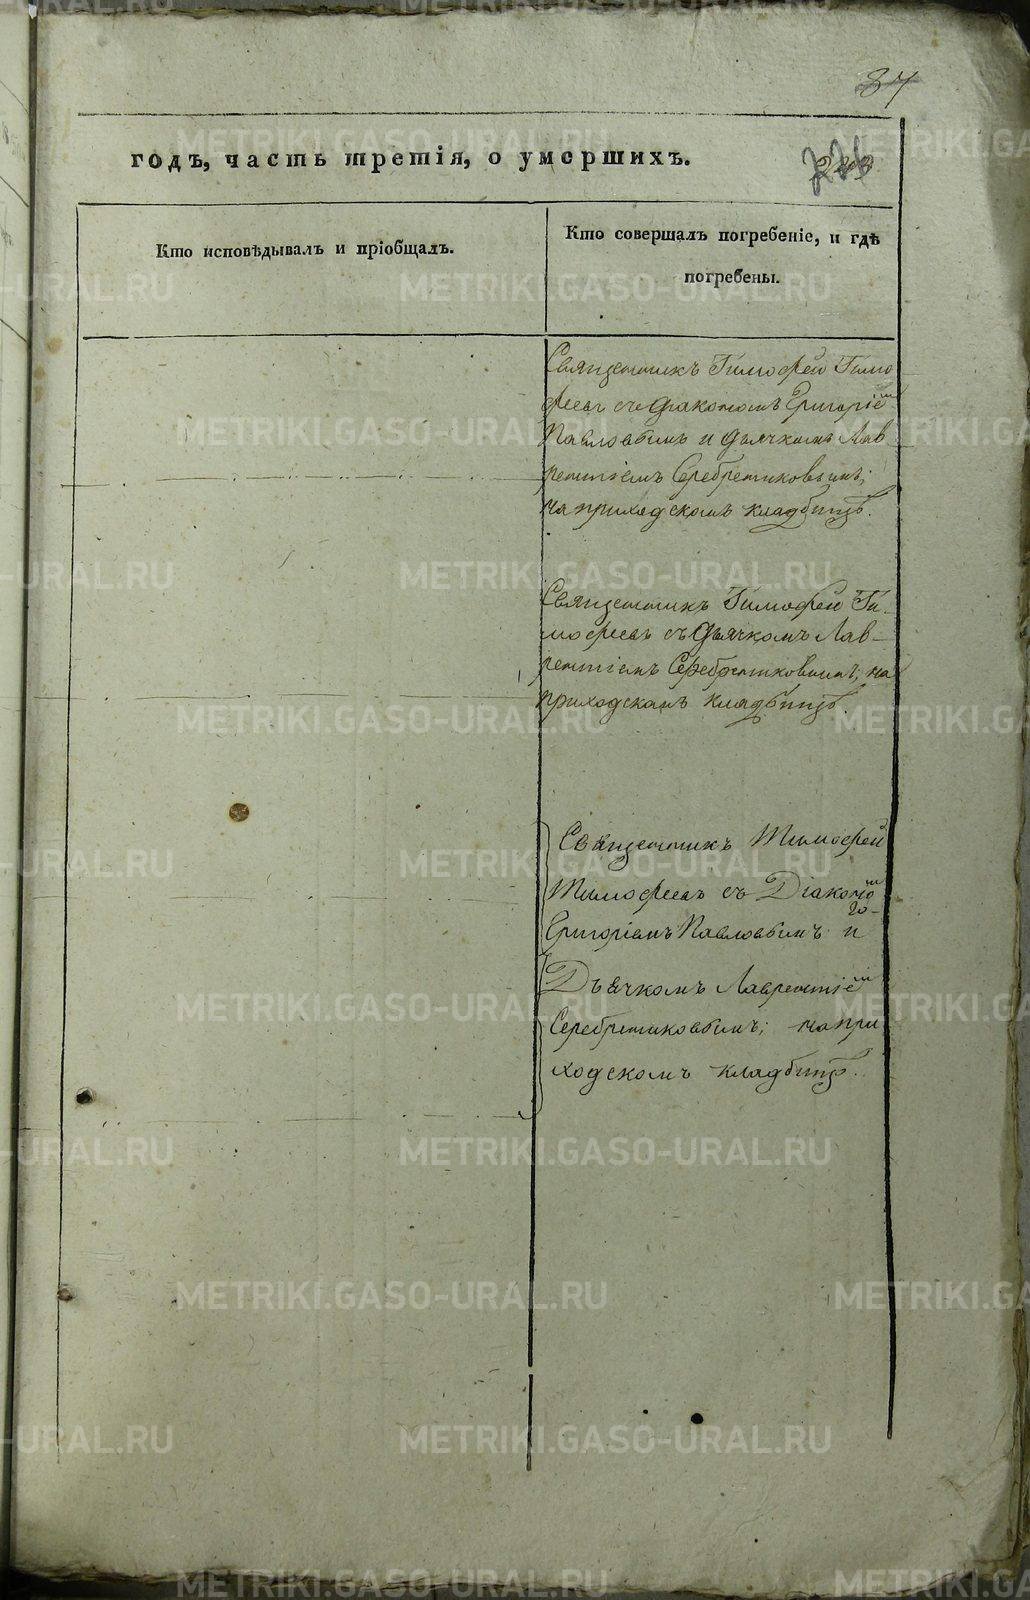 87
годъ, часть третія, о умершихъ.
Кто исповѣдывалъ и пріобщалъ.
Кто совершалъ погребеніе, и гдѣ
погребены.
Священникъ Тимофей Тимо
феевъ съ діакономъ Григоріем
Павловымъ и дьячкомъ Лав
рентіемъ Серебрениковымъ;
на приходскомъ кладбищѣ.
Священникъ Тимофей Ти-
мофеевъ съ дьячкомъ Лав-
рентіемъ Серебрениковымъ; на
приходскомъ кладбищѣ.
Священникъ Тимофей
Тимофеевъ съ Діаконом
Григоріемъ Павловымъ и
Дьячкомъ Лаврентіем
Серебрениковымъ; на при
ходскомъ кладбищѣ.
METRIKI.GASO-URAL.RU